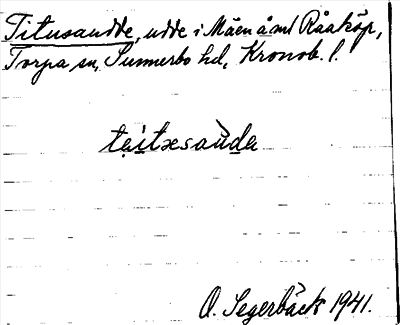 Titusaudde, udde i Måen å ml Råaköp,
Torpa sn, Sunnerbo hd, Kronob. l.
tạitxsaùdα
O. Segerbäck 1941.